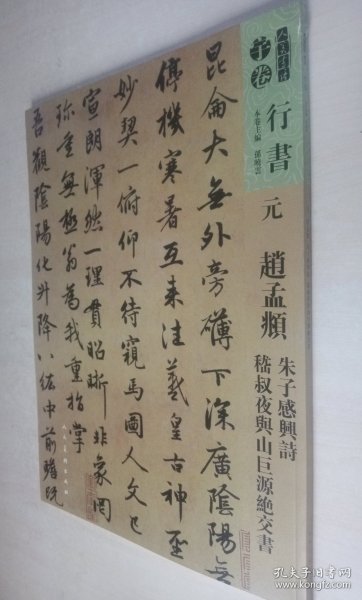 人美書譜
子卷
行書
本卷主編 孫曉雲
元
趙孟頫
朱子感興詩
嵇叔夜與山巨源絶交書
昆侖大無外旁礴下深廣陰陽無
停機寒暑互來往羲皇古神聖
妙契一俯仰不待窺馬圖人文已
宣朗渾然一理貫昭晰非象罔
珎重無極翁為我重指掌
吾觀陰陽化升降八紘中前瞻既
人民美術出版社
孔夫子旧书网